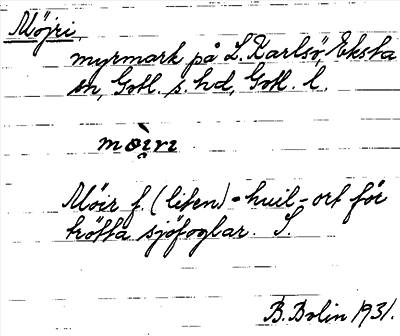 Möjri,
myrmark på L. Karlsö, Eksta
sn, Gotl. s. hd, Gotl. l.
moi̯ri
Möir f. (liten) = huil-ort för
trötta sjöfoglar. S.
B. Bolin 1931.